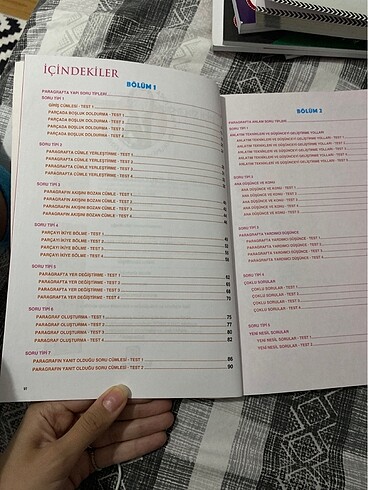 İÇİNDEKİLER
BÖLÜM 1
PARAGRAFTA YAPI SORU TİPLERİ
SORU TİPİ 1
GİRİŞ CÜMLESİ - TEST 1
PARÇADA BOŞLUK DOLDURMA - TEST 1
PARÇADA BOŞLUK DOLDURMA - TEST 2
PARÇADA BOŞLUK DOLDURMA - TEST 3
PARÇADA BOŞLUK DOLDURMA - TEST 4
SORU TİPİ 2
PARAGRAFTA CÜMLE YERLEŞTİRME - TEST 1
PARAGRAFTA CÜMLE YERLEŞTİRME - TEST 2
PARAGRAFTA CÜMLE YERLEŞTİRME - TEST 3
PARAGRAFTA CÜMLE YERLEŞTİRME - TEST 4
SORU TİPİ 3
PARAGRAFIN AKIŞINI BOZAN CÜMLE - TEST 1
PARAGRAFIN AKIŞINI BOZAN CÜMLE - TEST 2
PARAGRAFIN AKIŞINI BOZAN CÜMLE - TEST 3
PARAGRAFIN AKIŞINI BOZAN CÜMLE - TEST 4
SORU TİPİ 4
PARÇAYI İKİYE BÖLME - TEST 1
PARÇAYI İKİYE BÖLME - TEST 2
PARÇAYI İKİYE BÖLME - TEST 3
PARÇAYI İKİYE BÖLME - TEST 4
SORU TİPİ 5
PARAGRAFTA YER DEĞİŞTİRME - TEST 1 62
PARAGRAFTA YER DEĞİŞTİRME - TEST 2 65
PARAGRAFTA YER DEĞİŞTİRME - TEST 3 68
PARAGRAFTA YER DEĞİŞTİRME - TEST 4 70
SORU TİPİ 6
PARAGRAF OLUŞTURMA - TEST 1 75
PARAGRAF OLUŞTURMA - TEST 2 77
PARAGRAF OLUŞTURMA - TEST 3 80
PARAGRAF OLUŞTURMA - TEST 4 82
SORU TİPİ 7
PARAGRAFIN YANIT OLDUĞU SORU CÜMLESİ - TEST 1 86
PARAGRAFIN YANIT OLDUĞU SORU CÜMLESİ - TEST 2 90
BÖLÜM 2
PARAGRAFTA ANLAM SORU TİPLERİ
SORU TİPİ 1
ANLATIM TEKNİKLERİ VE DÜŞÜNCEYİ GELİŞTİRME YOLLARI
ANLATIM TEKNİKLERİ VE DÜŞÜNCEYİ GELİŞTİRME YOLLARI - TEST 1
ANLATIM TEKNİKLERİ VE DÜŞÜNCEYİ GELİŞTİRME YOLLARI - TEST 2
ANLATIM TEKNİKLERİ VE DÜŞÜNCEYİ GELİŞTİRME YOLLARI - TEST 3
ANLATIM TEKNİKLERİ VE DÜŞÜNCEYİ GELİŞTİRME YOLLARI - TEST 4
SORU TİPİ 2
ANA DÜŞÜNCE VE KONU
ANA DÜŞÜNCE VE KONU - TEST 1
ANA DÜŞÜNCE VE KONU - TEST 2
ANA DÜŞÜNCE VE KONU - TEST 3
ANA DÜŞÜNCE VE KONU - TEST 4
SORU TİPİ 3
PARAGRAFTA YARDIMCI DÜŞÜNCE
PARAGRAFTA YARDIMCI DÜŞÜNCE - TEST 1
PARAGRAFTA YARDIMCI DÜŞÜNCE - TEST 2
PARAGRAFTA YARDIMCI DÜŞÜNCE - TEST 3
PARAGRAFTA YARDIMCI DÜŞÜNCE - TEST 4
SORU TİPİ 4
ÇOKLU SORULAR
ÇOKLU SORULAR - TEST 1
ÇOKLU SORULAR - TEST 2
ÇOKLU SORULAR - TEST 3
ÇOKLU SORULAR - TEST 4
SORU TİPİ 5
YENİ NESİL SORULAR
YENİ NESİL SORULAR - TEST 1
YENİ NESİL SORULAR - TEST 2